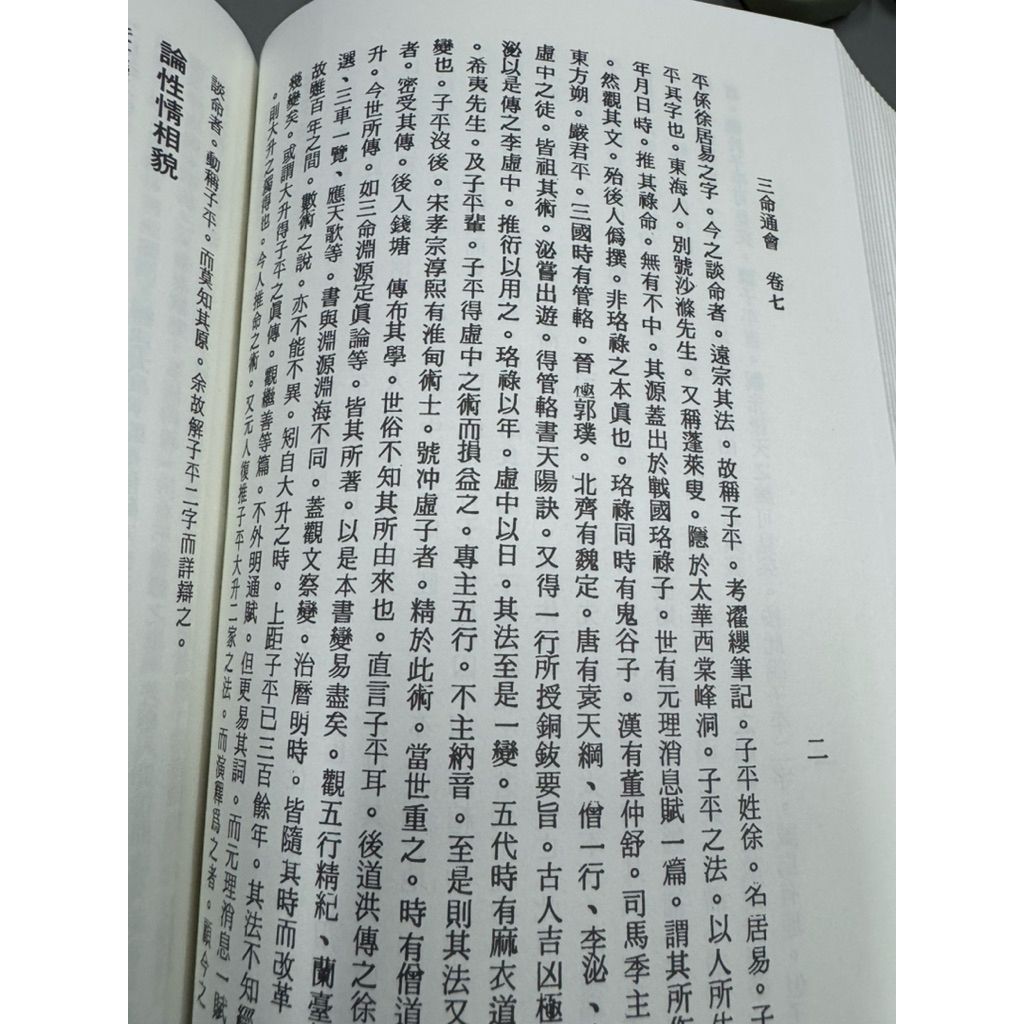 三命通會 卷七
二
平係徐居易之字。今之談命者。遠宗其法。故稱子平。考濯纓筆記。子平姓徐。名居易。子
平其字也。東海人。別號沙滌先生。又稱蓬萊叟。隱於太華西棠峰洞。子平之法。以人所生
年月日時。推其祿命。無有不中。其源蓋出於戰國珞祿子。世有元理消息賦一篇。謂其所作
。然觀其文。殆後人僞撰。非珞祿之本眞也。珞祿同時有鬼谷子。漢有董仲舒。司馬季主
東方朔。嚴君平。三國時有管輅。晉極郭璞。北齊有魏定。唐有袁天綱、僧一行、李泌、
虛中之徒。皆祖其術。泌嘗出遊。得管輅書天陽訣。又得一行所授銅鈸要旨。古人吉凶極
泌以是傳之李虛中。推衍以用之。珞祿以年。虛中以日。其法至是一變。五代時有麻衣道
。希夷先生。及子平輩。子平得虛中之術而損益之。專主五行。不主納音。至是則其法又
變也。子平沒後。宋孝宗淳熙有淮甸術士。號冲虛子者。精於此術。當世重之。時有僧道
者。密受其傳。後入錢塘 傳布其學。世俗不知其所由來也。直言子平耳。後道洪傳之徐
升。今世所傳。如三命淵源定眞論等。皆其所著。以是本書變易盡矣。觀五行精紀、蘭臺
選、三車一覽、應天歌等。書與淵源淵海不同。蓋觀文察變。治曆明時。皆隨其時而改革
故雖百年之間。數術之說。亦不能不異。矧自大升之時。上距子平已三百餘年。其法不知經
幾變矣。或謂大升得子平之眞傳。觀繼善等篇。不外明通賦。但更易其詞。而元理消息一賦
。則大升之獨得也。今人推命之術。又元人復推子平大升二家之法。而演釋爲之者。顧今之
談命者。動稱子平。而莫知其原。余故解子平二字而詳辯之。
論性情相貌